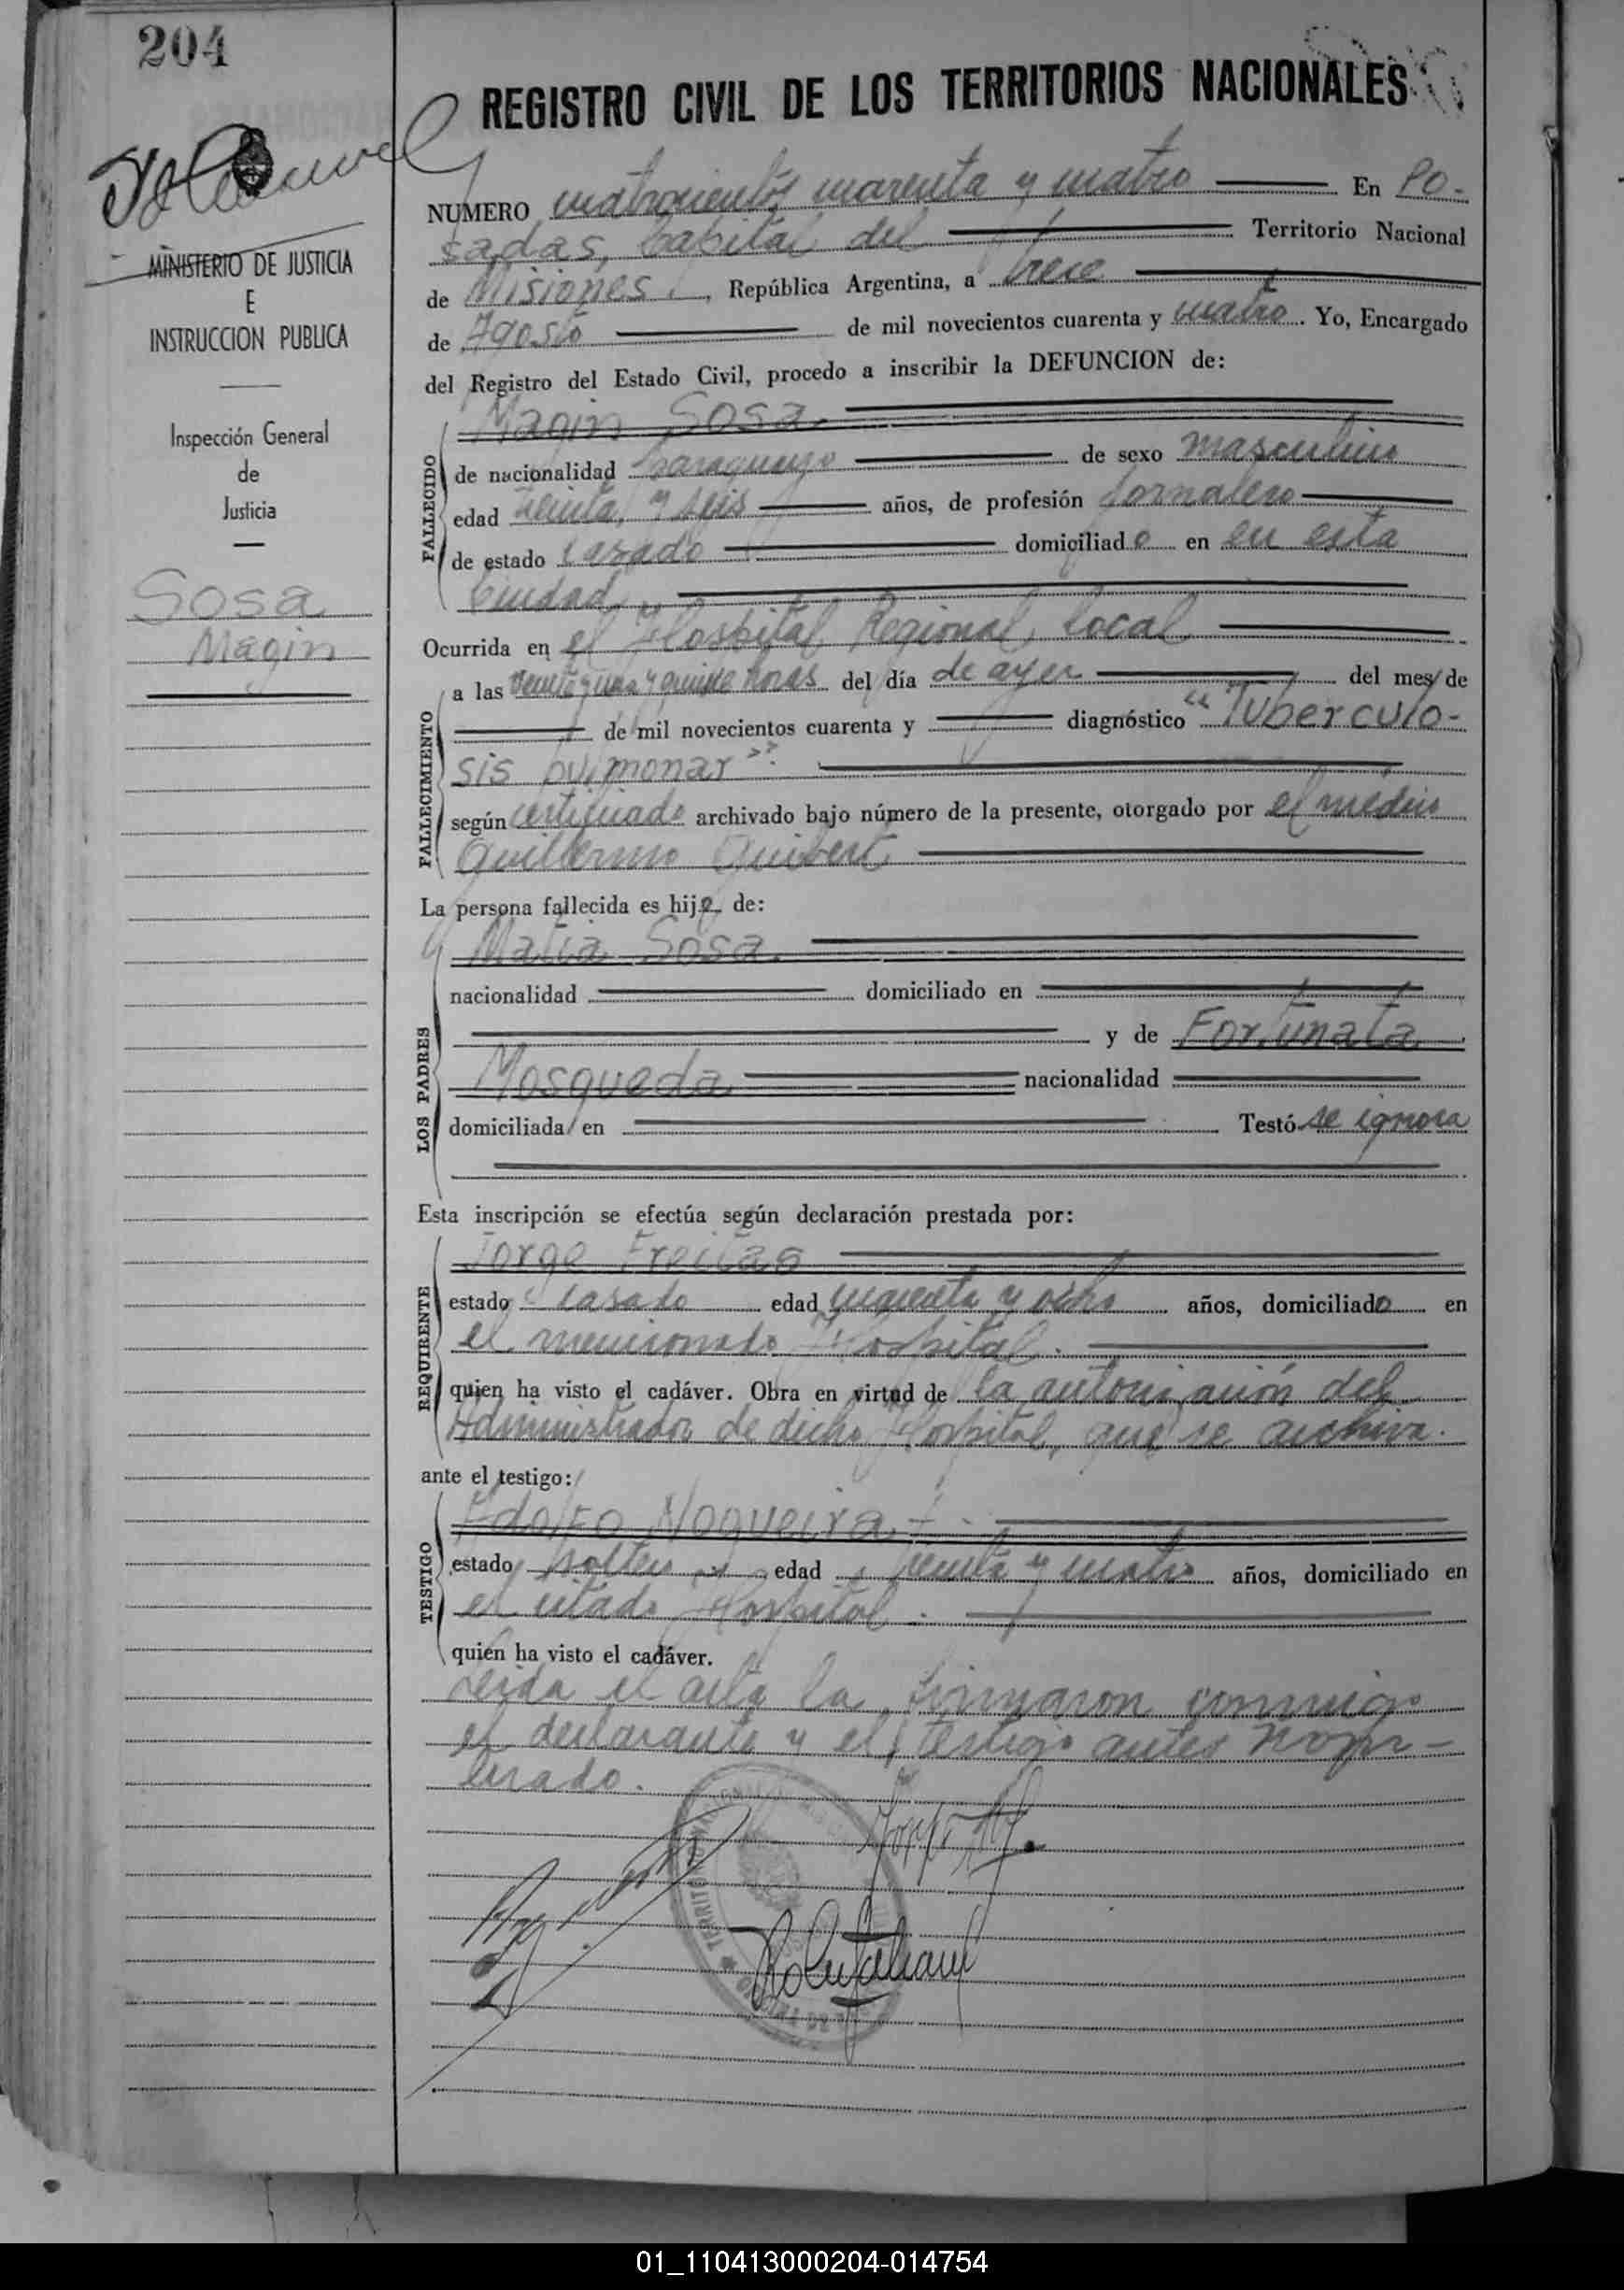 204
REGISTRO CIVIL DE LOS TERRITORIOS NACIONALES
MINISTERIO DE JUSTICIA
E
INSTRUCCION PUBLICA
Inspección General
de
Justicia
Sosa
Magin
NUMERO cuatrocientos cuarenta y cuatro En Po-
sadas, Capital del Territorio Nacional
de Misiones, República Argentina, a trece
de Agosto de mil novecientos cuarenta y cuatro. Yo, Encargado
del Registro del Estado Civil, procedo a inscribir la DEFUNCION de:
Magin Sosa
FALLECIDO
de nacionalidad paraguayo de sexo masculino
edad treinta y seis años, de profesión Jornalero
de estado casado domiciliado en en esta
Ciudad
Ocurrida en el Hospital Regional local
FALLECIMIENTO
a las veinte y una y quince horas del día de ayer del mes de
de mil novecientos cuarenta y diagnóstico "Tuberculo-
sis pulmonar".
según certificado archivado bajo número de la presente, otorgado por el médico
Guillermo Guibert
La persona fallecida es hijo de:
LOS PADRES
Matia Sosa
nacionalidad domiciliado en
y de Fortunata
Mosqueda nacionalidad
domiciliada en Testó se ignora
Esta inscripción se efectúa según declaración prestada por:
REQUIRENTE
Jorge Freitas
estado casado edad cincuenta y ocho años, domiciliado en
el mencionado Hospital.
quien ha visto el cadáver. Obra en virtud de la autorización del
Administrador de dicho Hospital, que se archiva.
ante el testigo:
TESTIGO
Adolfo Nogueira
estado soltero edad treinta y cuatro años, domiciliado en
el citado Hospital.
quien ha visto el cadáver.
Leida el acta la firmaron conmigo
el declarante y el testigo antes nom-
brado.
01_110413000204-014754